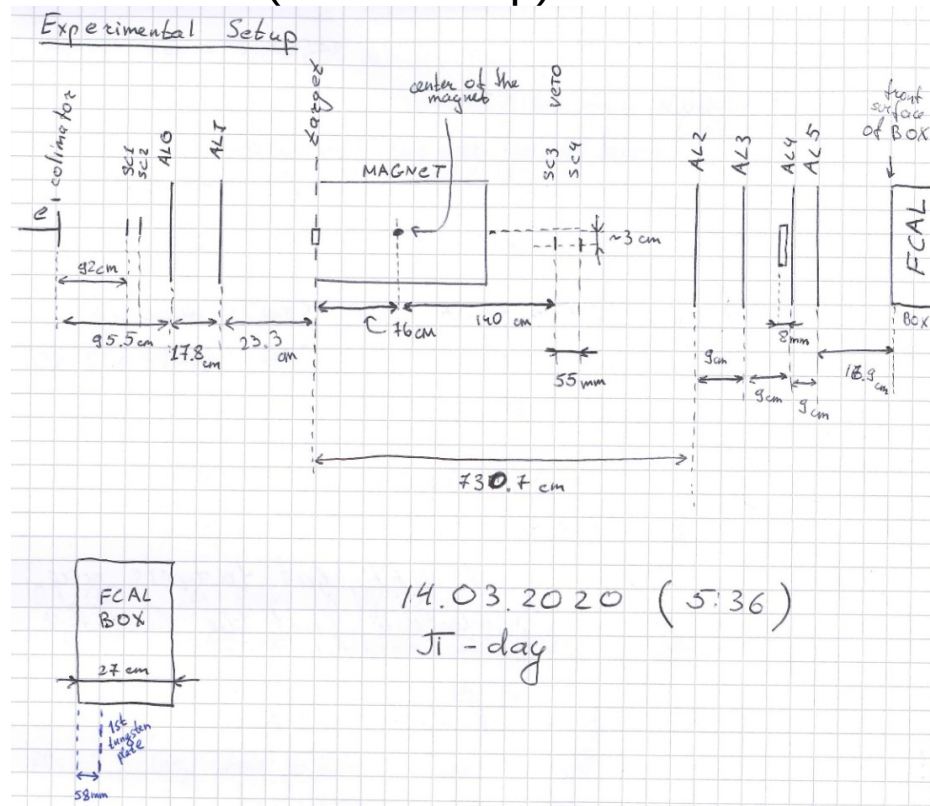 Experimental Setup
colimator
SC1
SC2
AL0
AL1
target
center of the
magnet
MAGNET
SC3
SC4
VETO
AL2
AL3
AL4
AL5
front
surface
of BOX
FCAL
BOX
e
~3 cm
92cm
95.5cm
17.8cm
23.3
cm
76cm
140 cm
55 mm
9cm
8mm
9cm
9cm
cm
730.7 cm
FCAL
BOX
27 cm
1st
tungsten
plate
58mm
14.03.2020 (5:36)
π - day